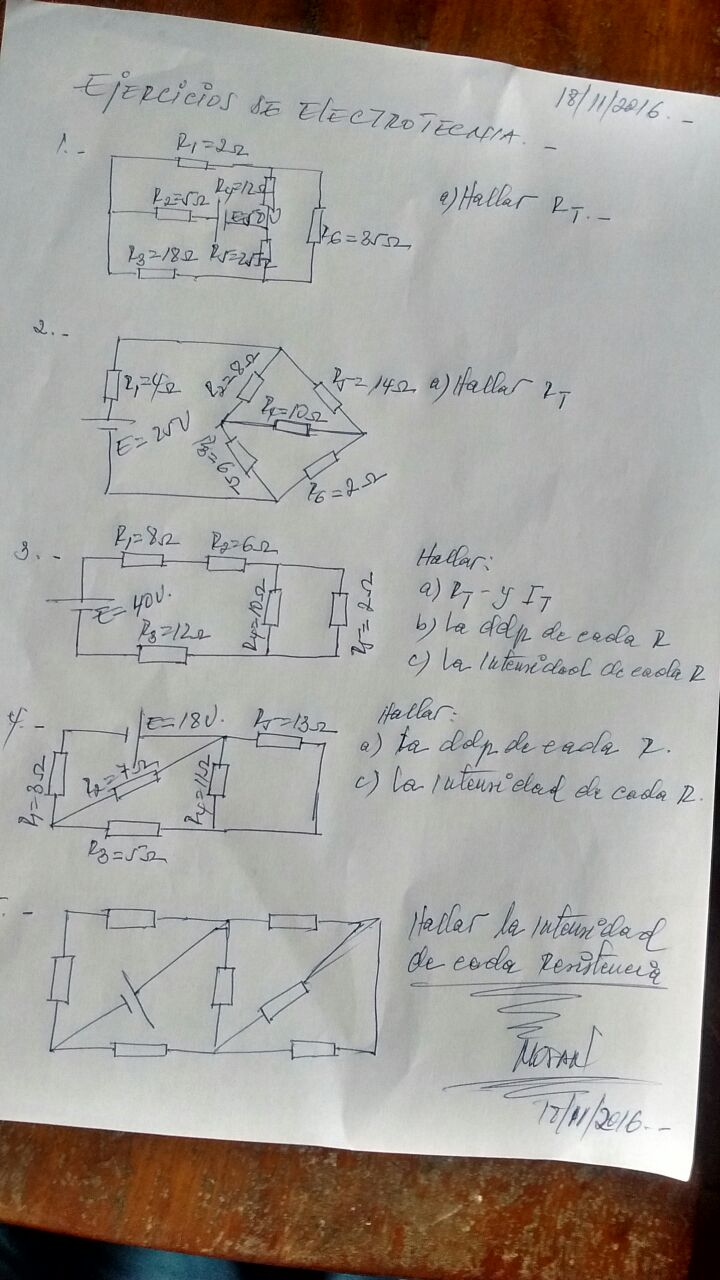 18/11/2016.-
EJERCICIOS DE ELECTROTECNIA.-
1.-
R1=2Ω
R2=5Ω
R4=12Ω
E=50V
R3=18Ω
R5=25Ω
R6=35Ω
a) Hallar RT.-
2.-
R1=4Ω
E=25V
R2=8Ω
R5=14Ω
R4=10Ω
R3=6Ω
R6=2Ω
a) Hallar RT
3.-
R1=8Ω
R2=6Ω
E=40V.
R3=12Ω
R4=10Ω
R5=2Ω
Hallar:
a) RT - y IT
b) La ddp de cada R
c) La intensidad de cada R
4.-
E=18V.
R5=13Ω
R1=3Ω
R2=7Ω
R4=11Ω
R3=5Ω
Hallar:
a) La ddp de cada R.
c) La intensidad de cada R.
.-
Hallar la intensidad
de cada Resistencia